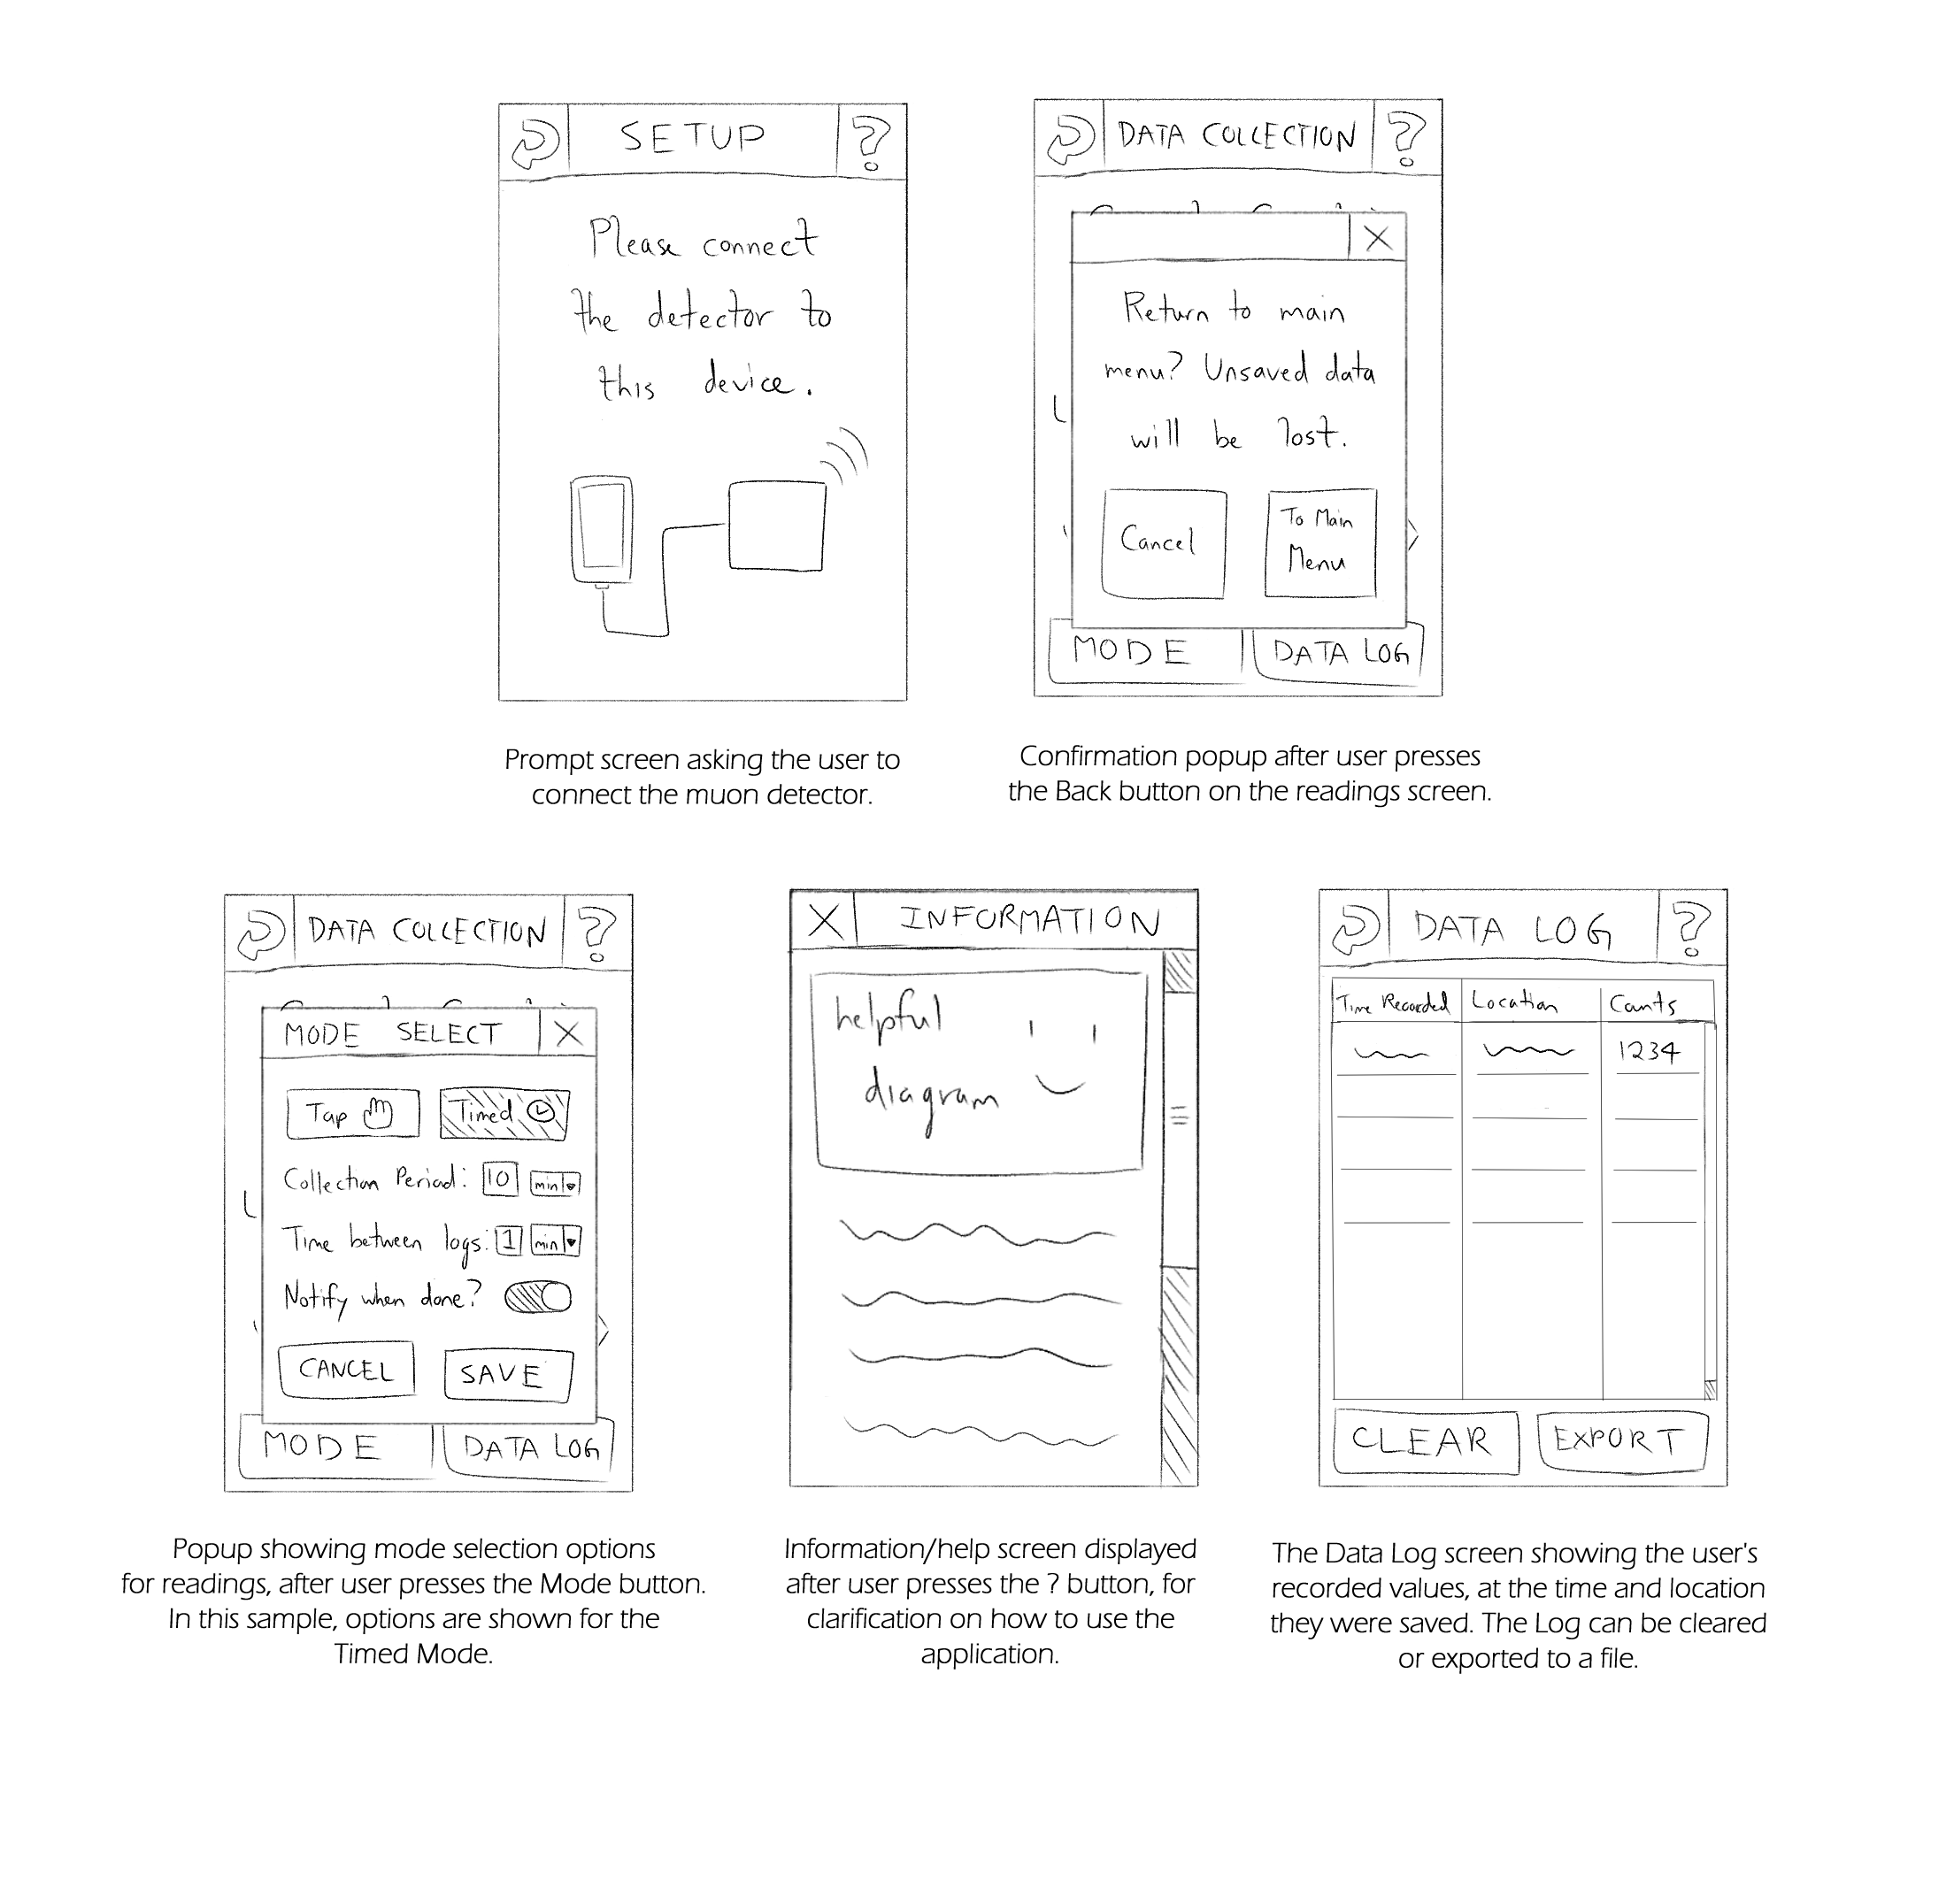 SETUP ?
Please connect
the detector to
this device.
Prompt screen asking the user to
connect the muon detector.
DATA COLLECTION ?
X
Return to main
menu? Unsaved data
will be lost.
Cancel
To Main
Menu
MODE DATA LOG
Confirmation popup after user presses
the Back button on the readings screen.
DATA COLLECTION ?
MODE SELECT X
Tap Timed
Collection Period: 10 min
Time between logs: 1 min
Notify when done?
CANCEL SAVE
MODE DATA LOG
Popup showing mode selection options
for readings, after user presses the Mode button.
In this sample, options are shown for the
Timed Mode.
X INFORMATION
helpful
diagram
Information/help screen displayed
after user presses the ? button, for
clarification on how to use the
application.
DATA LOG ?
Time Recorded Location Counts
1234
CLEAR EXPORT
The Data Log screen showing the user's
recorded values, at the time and location
they were saved. The Log can be cleared
or exported to a file.